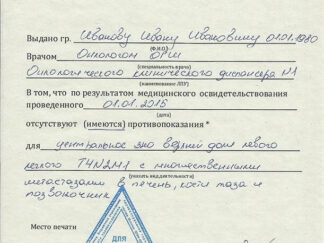 Выдано гр. Иванову Ивану Ивановичу 01.01.1980
(Ф.И.О.)
Врачом Онкологом ОРШ
(специальность врача)
Онкологического клинического диспансера №1
(наименование ЛПУ)
В том, что по результатом медицинского освидетельствования
проведенного 01.01.2015
(дата)
отсутствуют (имеются) противопоказания *
для центральное зно верхней доли левого
(указать вид деятельности)
легкого T4N2M1 с множественными
метастазами в печень, кости таза и
позвоночник
Место печати
ДЛЯ